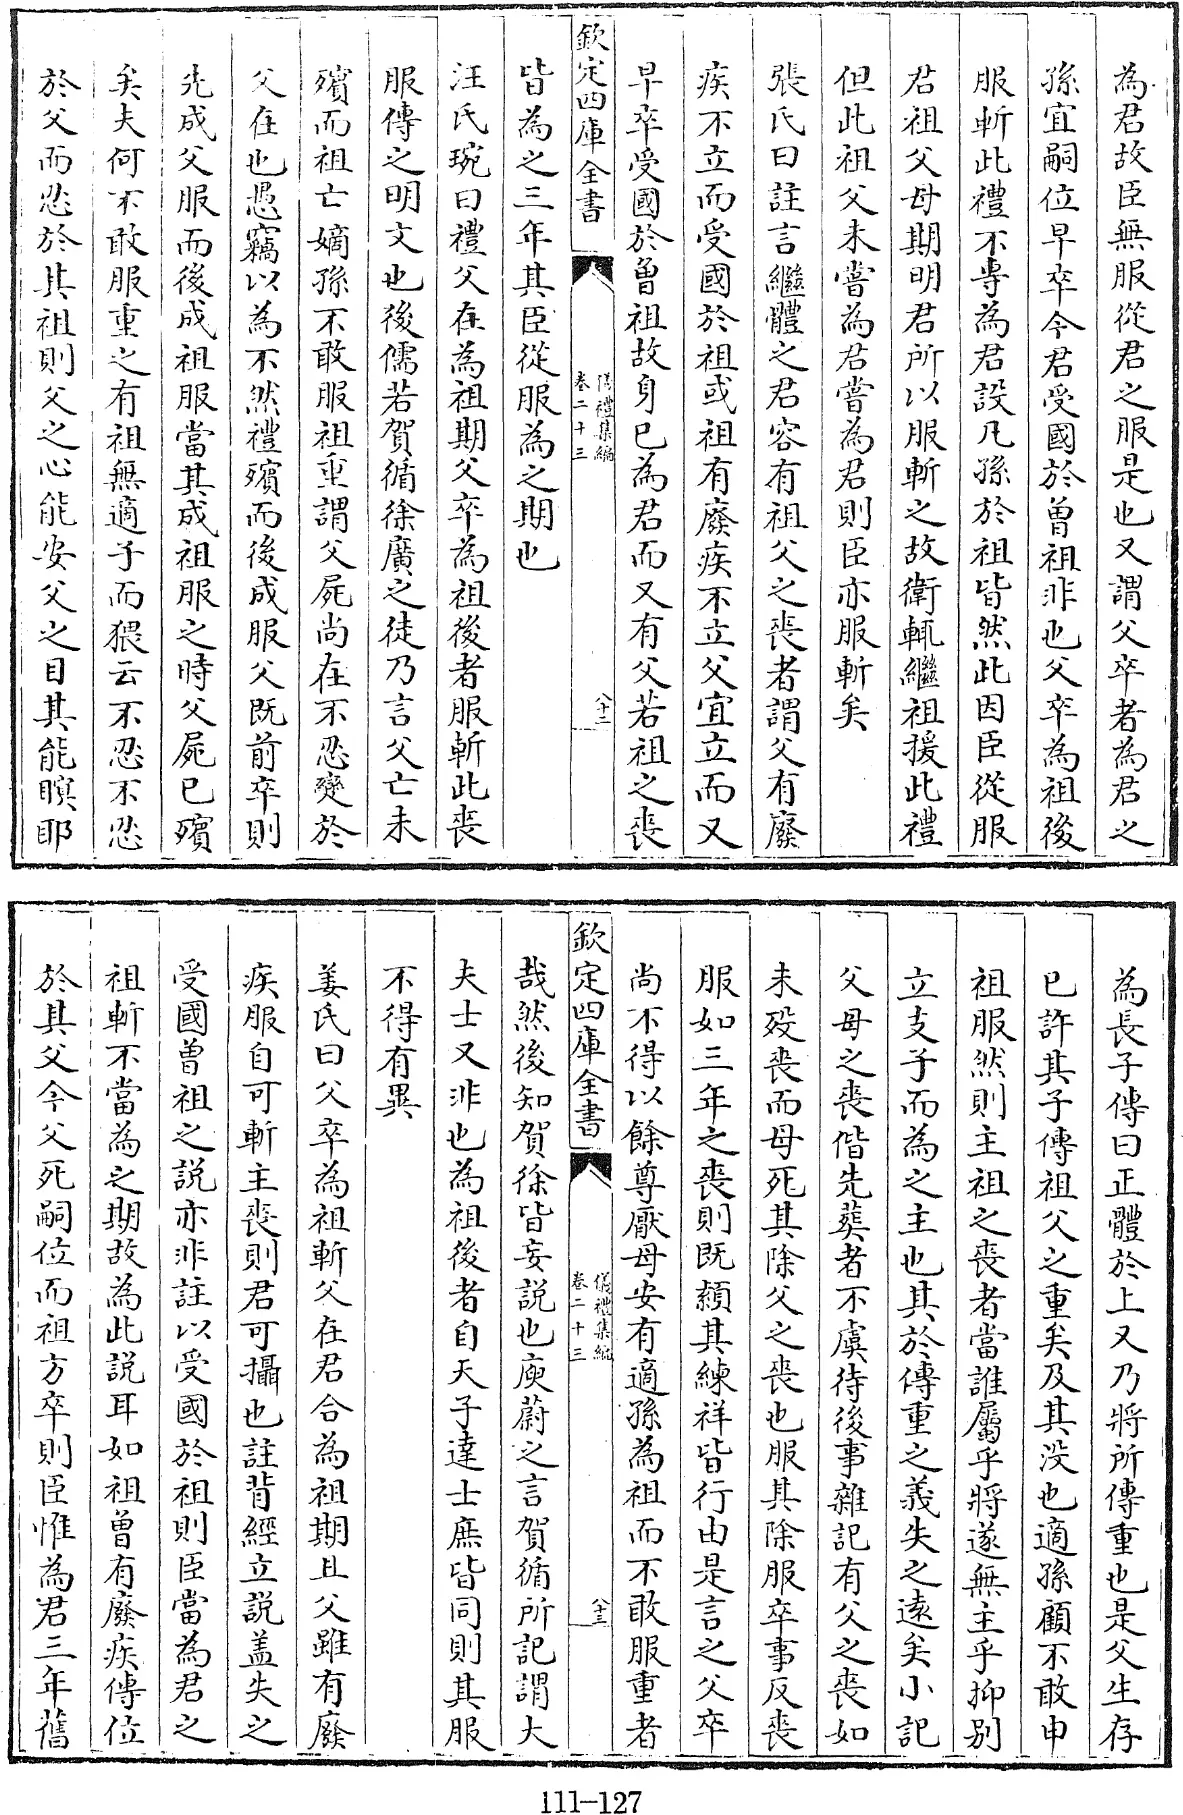 為君故臣無服從君之服是也又謂父卒者為君之
孫宜嗣位早卒今君受國於曾祖非也父卒為祖後
服斬此禮不専為君設凡孫於祖皆然此因臣從服
君祖父母期明君所以服斬之故衛輒繼祖援此禮
但此祖父未嘗為君嘗為君則臣亦服斬矣
張氏曰註言繼體之君容有祖父之喪者謂父有廢
疾不立而受國於祖或祖有廢疾不立父宜立而又
早卒受國於曾祖故身已為君而又有父若祖之喪
欽定四庫全書
儀禮集編
卷二十三
八十二
皆為之三年其臣從服為之期也
汪氏琬曰禮父在為祖期父卒為祖後者服斬此喪
服傳之明文也後儒若賀循徐廣之徒乃言父亡未
殯而祖亡嫡孫不敢服祖重謂父屍尚在不忍變於
父在也愚竊以為不然禮殯而後成服父既前卒則
先成父服而後成祖服當其成祖服之時父屍已殯
矣夫何不敢服重之有祖無適子而猥云不忍不忍
於父而忍於其祖則父之心能安父之目其能瞑耶
為長子傳曰正體於上又乃將所傳重也是父生存
已許其子傳祖父之重矣及其没也適孫顧不敢申
祖服然則主祖之喪者當誰屬乎將遂無主乎抑别
立支子而為之主也其於傳重之義失之遠矣小記
父母之喪偕先葬者不虞待後事雜記有父之喪如
未殁喪而母死其除父之喪也服其除服卒事反喪
服如三年之喪則既顈其練祥皆行由是言之父卒
尚不得以餘尊厭母安有適孫為祖而不敢服重者
欽定四庫全書
儀禮集編
卷二十三
八十三
哉然後知賀徐皆妄説也庾蔚之言賀循所記謂大
夫士又非也為祖後者自天子達士庶皆同則其服
不得有異
姜氏曰父卒為祖斬父在君合為祖期且父雖有廢
疾服自可斬主喪則君可攝也註背經立説盖失之
受國曾祖之説亦非註以受國於祖則臣當為君之
祖斬不當為之期故為此説耳如祖曾有廢疾傳位
於其父今父死嗣位而祖方卒則臣惟為君三年舊
111-127